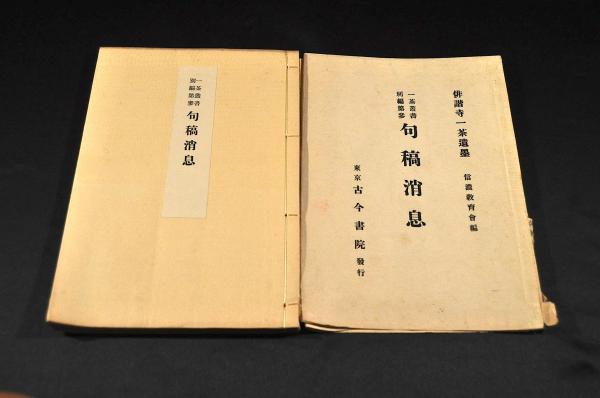 一茶叢書
別編第參
句稿消息
俳諧寺一茶遺墨
信濃教育會編
一茶叢書
別編第參
句稿消息
東京 古今書院 發行